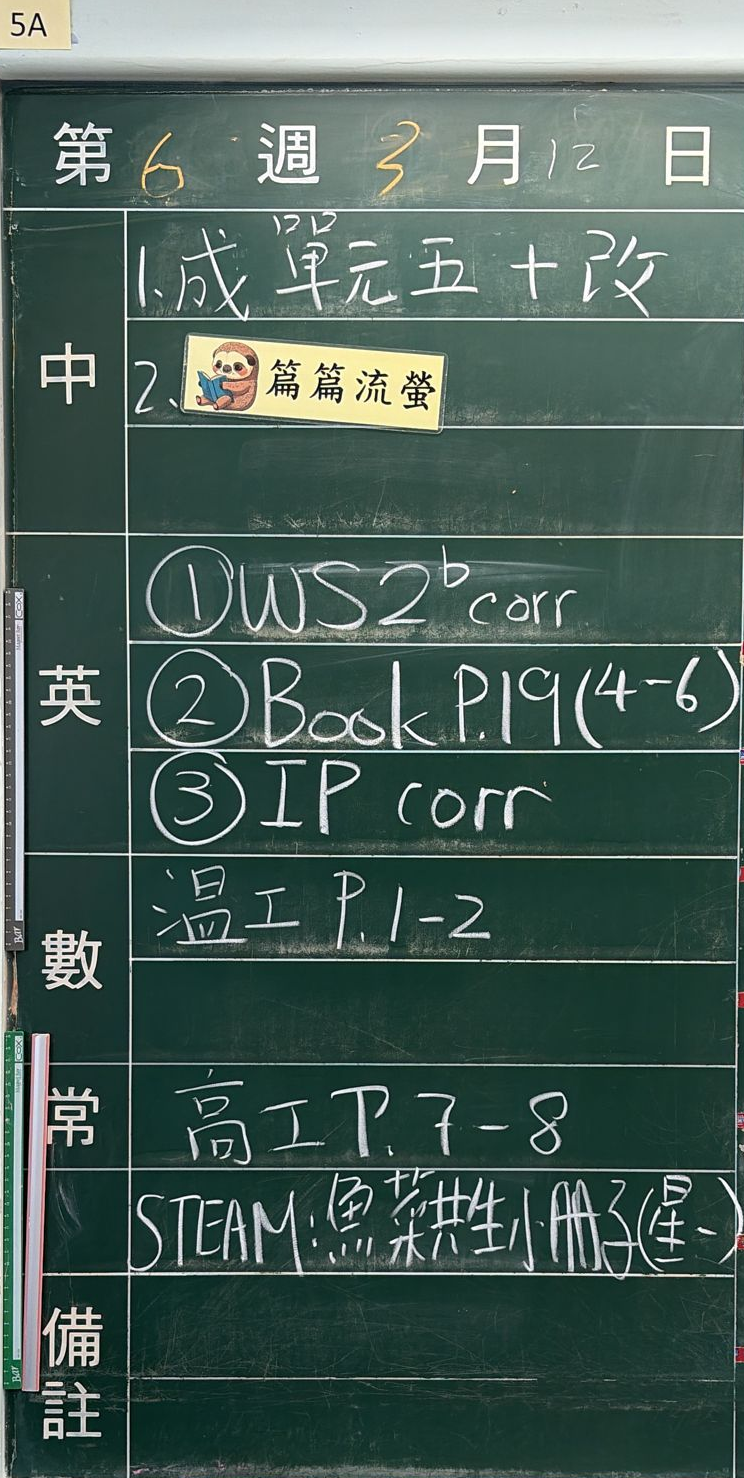 5A
第 6 週 3 月 12 日
中
1.成 單元五 + 改
2、篇篇流螢
英
①WS2ᵇ corr
②Book P.19(4-6)
③IP corr
數
溫工 P.1-2
常
高工 P.7-8
STEAM:魚菜共生小冊子(星一)
備註